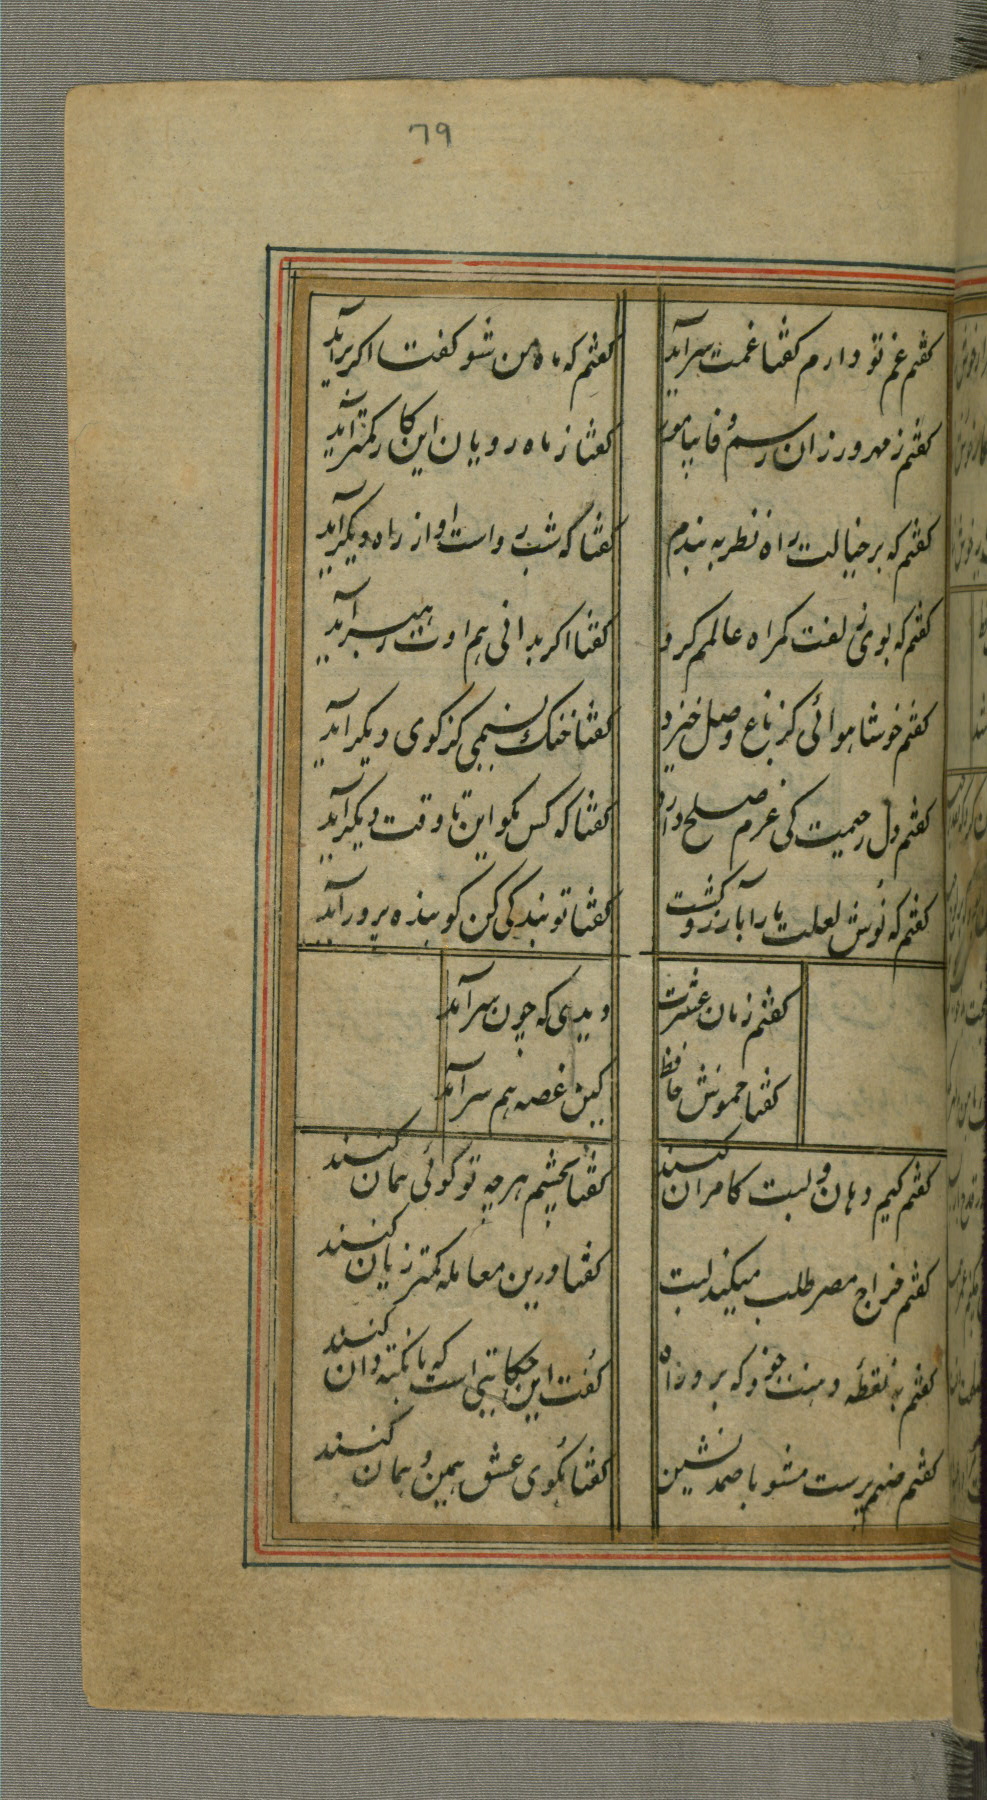 79
گفتم غم تو دارم گفتا غمت سرآید
گفتم که ماه من شو گفتا اگر برآید
گفتم ز مهرورزان رسم وفا بیاموز
گفتا ز ماه رویان این کار کمتر آید
گفتم که بر خیالت راه نظر به بندم
گفتا که شب رو است او از راه دیگر آید
گفتم که بوی زلفت گمراه عالمم کرد
گفتا اگر بدانی هم اوت رهبر آید
گفتم خوشا هوائی کز باغ وصل خیزد
گفتا خنک نسیمی کز کوی دیگر آید
گفتم دل رحیمت کی عزم صلح دارد
گفتا که کس مگو این تا وقت دیگر آید
گفتم که نوش لعلت ما را بآرزو کشت
گفتا تو بندگی کن کو بنده پرور آید
گفتم زمان عشرت
دیدی که چون سرآمد
گفتا خموش حافظ
کین غصه هم سرآمد
گفتم کیم دهان و لبت کامران کنند
گفتا بچشم هر چه تو گوئی همان کنند
گفتم خراج مصر طلب میکند لبت
گفتا درین معامله کمتر زیان کنند
گفتم به نقطهٔ دهنت خود که برد راه
گفت این حکایتی است که با نکته دان کنند
گفتم صنم پرست مشو با صمد نشین
گفتا بکوی عشق همین و همان کنند